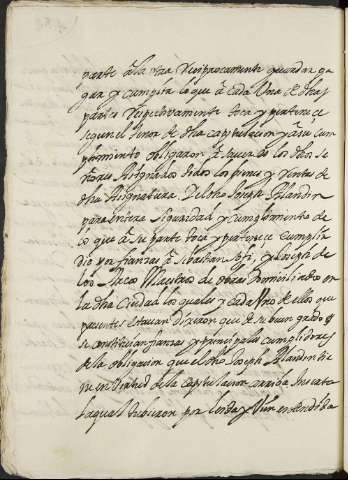 parte a la otra reciprocamente guardar pa
gar y cumplir lo que a cada una de dhas
partes respectivamente toca y pertenece
segun el tenor de dha capitulacion y a su cum
plimiento obligaron a saver es los dhos se
nores Asignados todos los vienes y rentas de
dha Asignatura. Y el dho Joseph Blandin
para entera seguridad y cumplimiento de
lo que a su parte toca y pertenece cumplir
dio por fianzas a Sebastian y Joseph de
Maestros de obras Domiciliados en
la dha ciudad los quales y cada uno de ellos que
presentes estavan Dixeron que de su buen grado
se constituian fianzas y principales cumplidores
de la obligacion que el dho Joseph Blandin tie
ne en virtud de la capitulacion arriba Inserta
la qual tubieron por leida y bien entendida